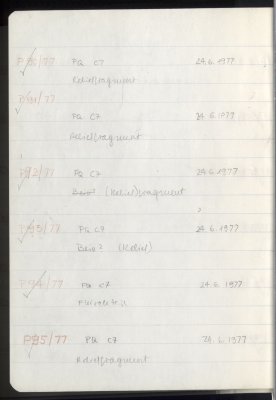 P90/77 PQ C7 24.6.1977
Relieffragment
P91/77
PQ C7 24.6.1977
Relieffragment
P92/77 PQ C7 24.6.1977
(Relief)fragment
P93/77 PQ C7 24.6.1977
? (Relief)
P94/77 PQ C7 24.6.1977
P95/77 PQ C7 24.6.1977
Relieffragment